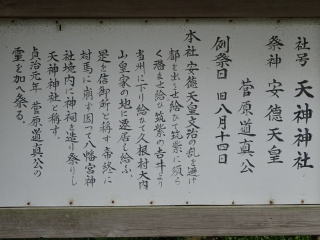 社号 天神神社
祭神 安德天皇
菅原道真公
例祭日 旧八月十四日
本社安德天皇文治の乱を避け
都を出させ給ひて筑紫に須ら
く潜ませ給ひ筑紫の吉井より
当州に下り給ひて久根村大内
山皇家の地に遷居し給ふ
是を信御所と称す帝終に
対馬に崩す因って八幡宮神
社境内に神祠を造り祭りし
天神神社と称す。
貞治元年 菅原道真公の
霊を加へ祭る。